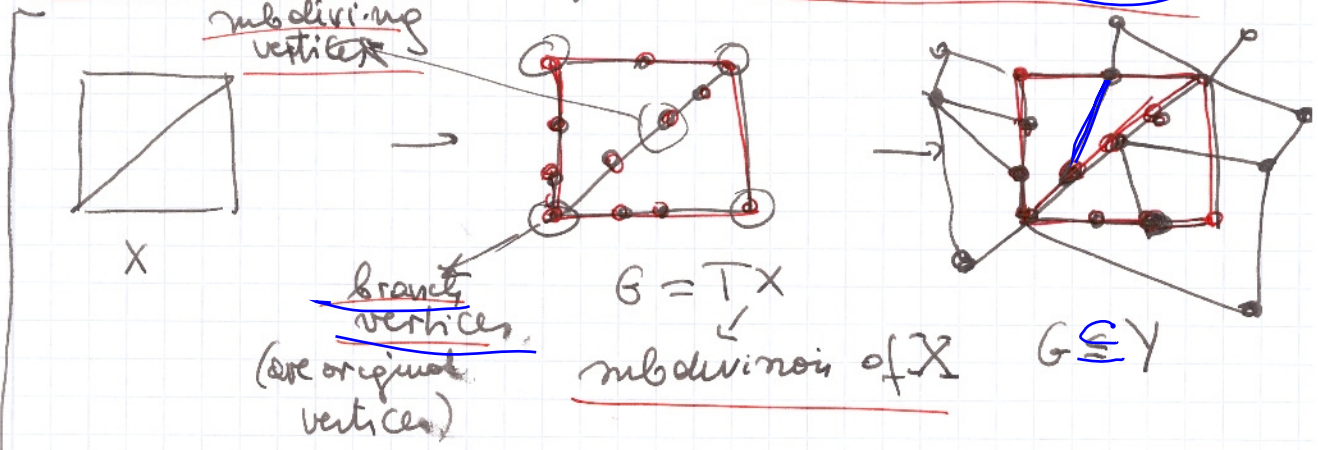 subdiviing
vertices
X
branch
vertices
(are original
vertices)
G = TX
subdivision of X
G ⊆ Y